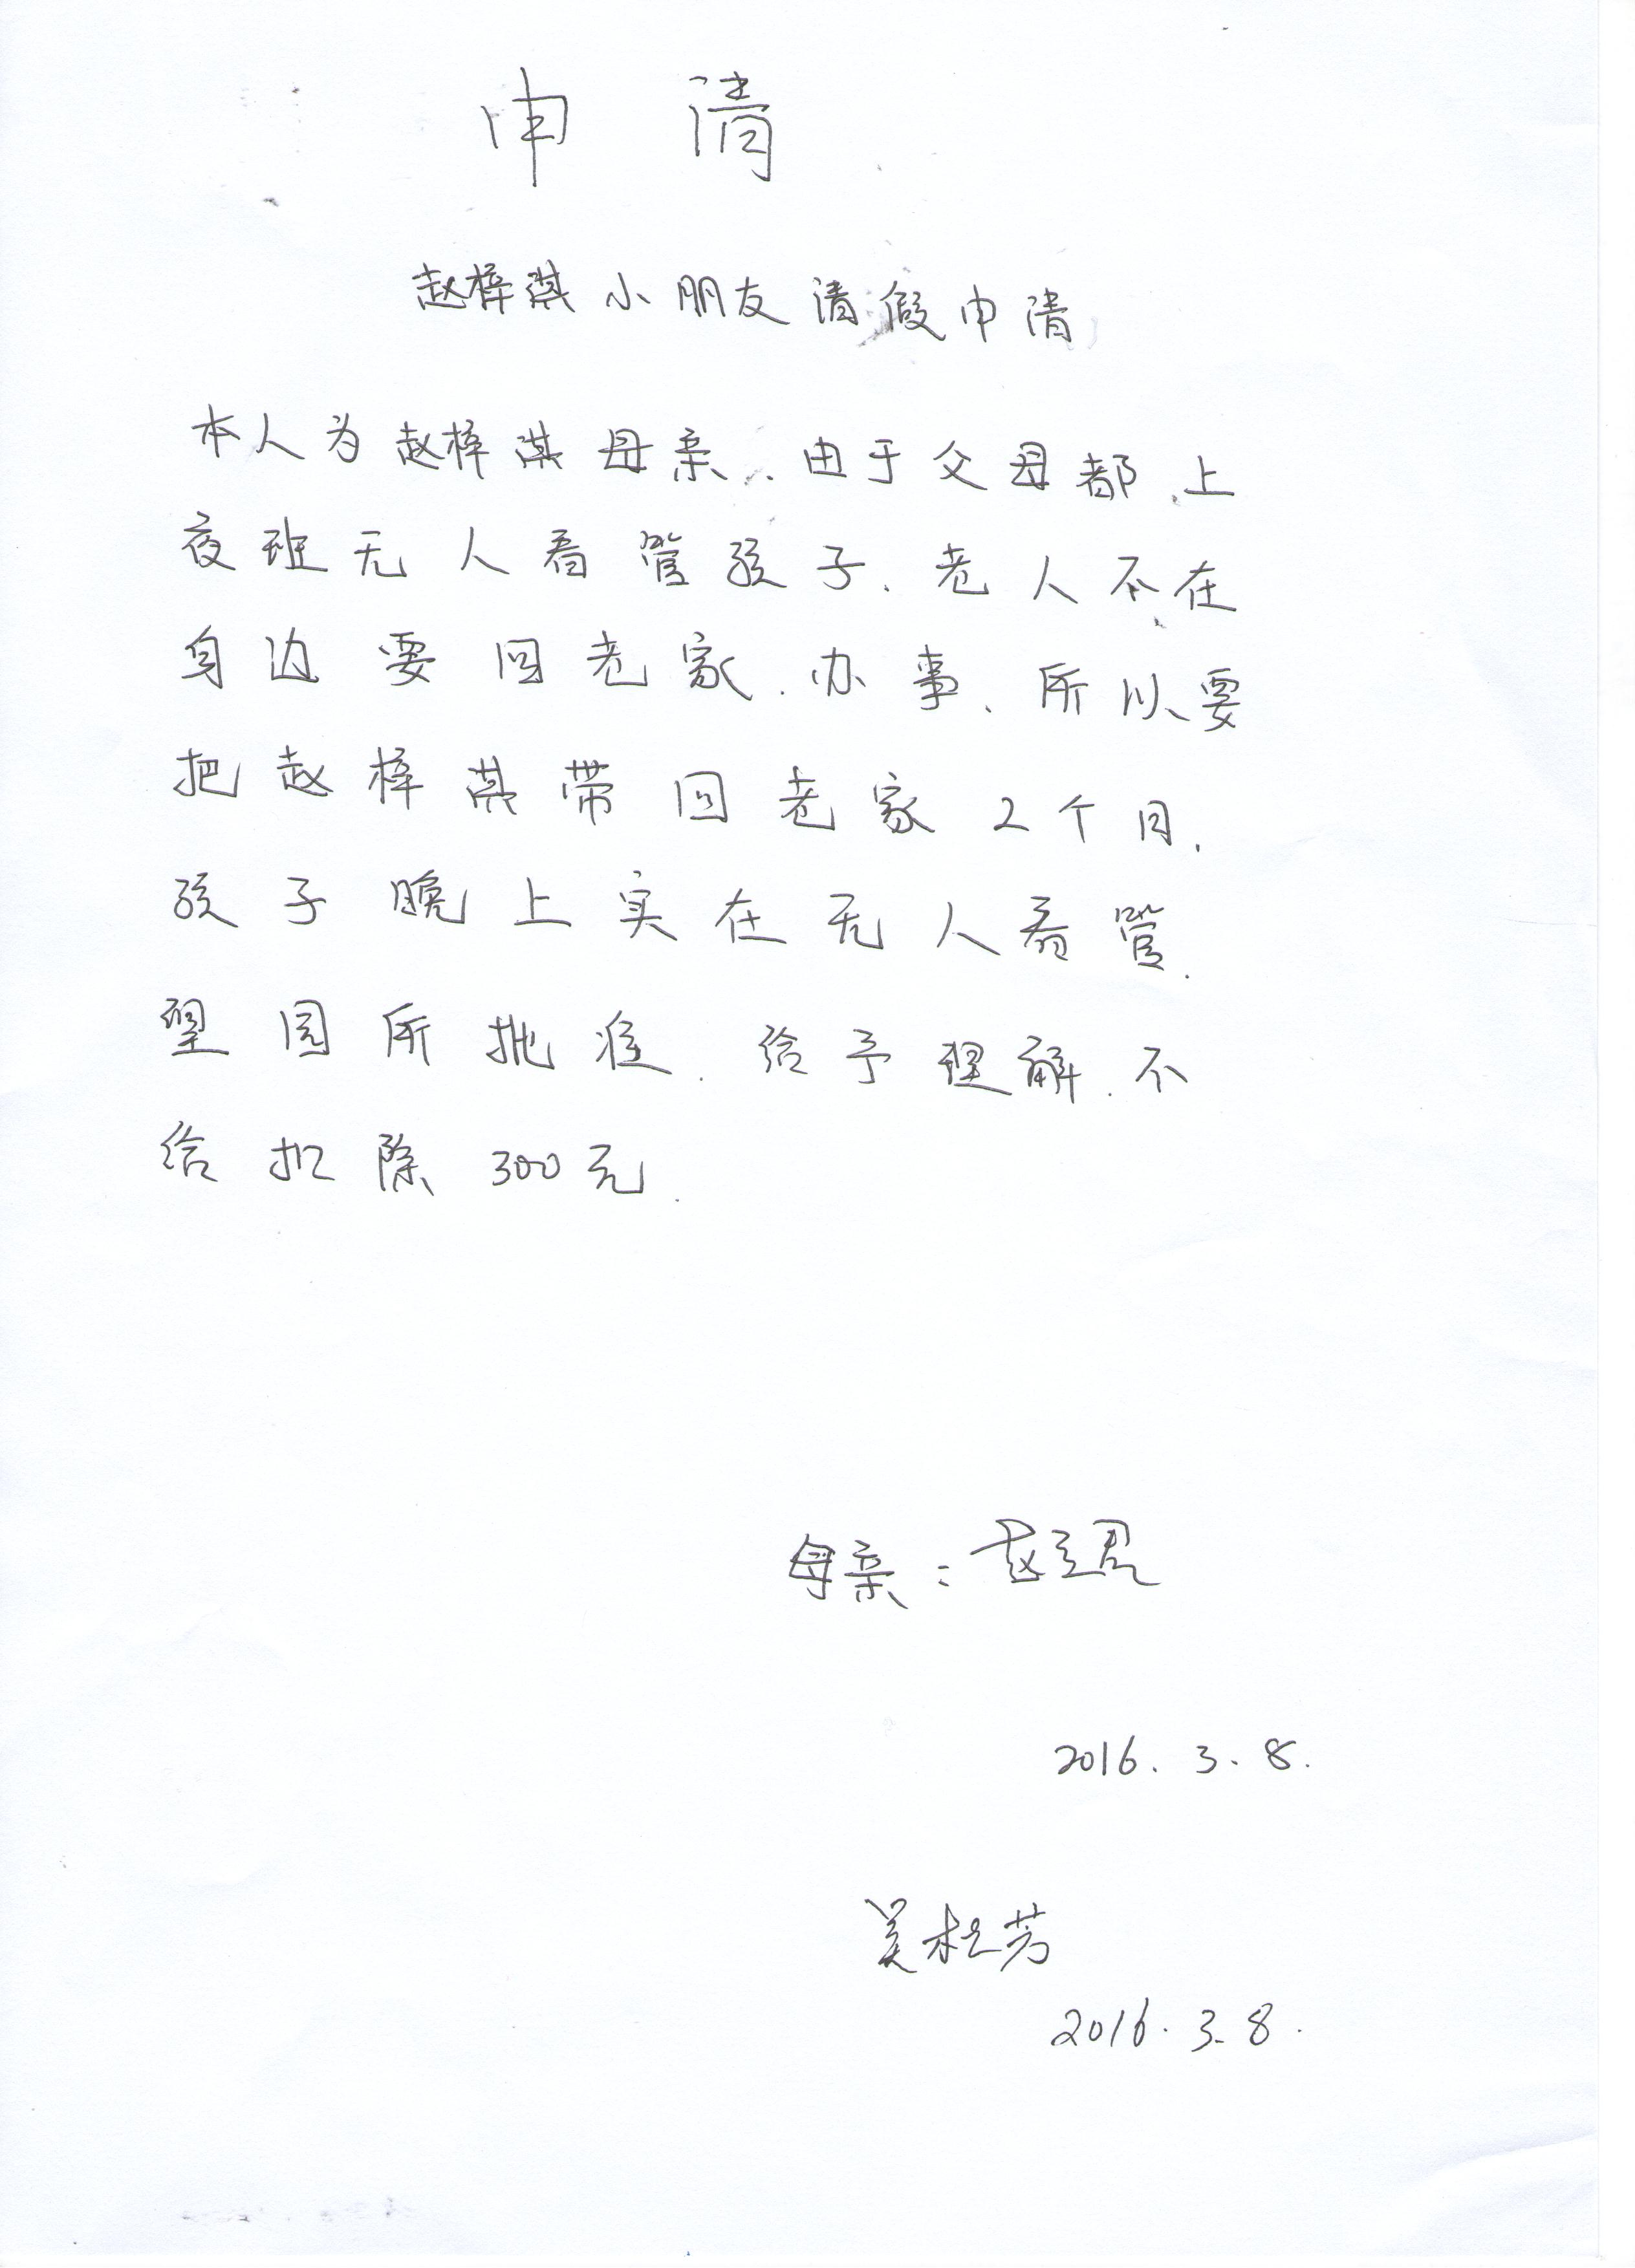 申 请
赵梓淇小朋友请假申请
本人为赵梓淇母亲.由于父母都.上
夜班无人看管孩子.老人不在
身边要回老家.办事、所以要
把赵梓淇带回老家2个月.
孩子晚上实在无人看管.
望园所批准.给予理解.不
给扣除300元.
母亲:赵立君
2016.3.8.
吴松芳
2016.3.8.